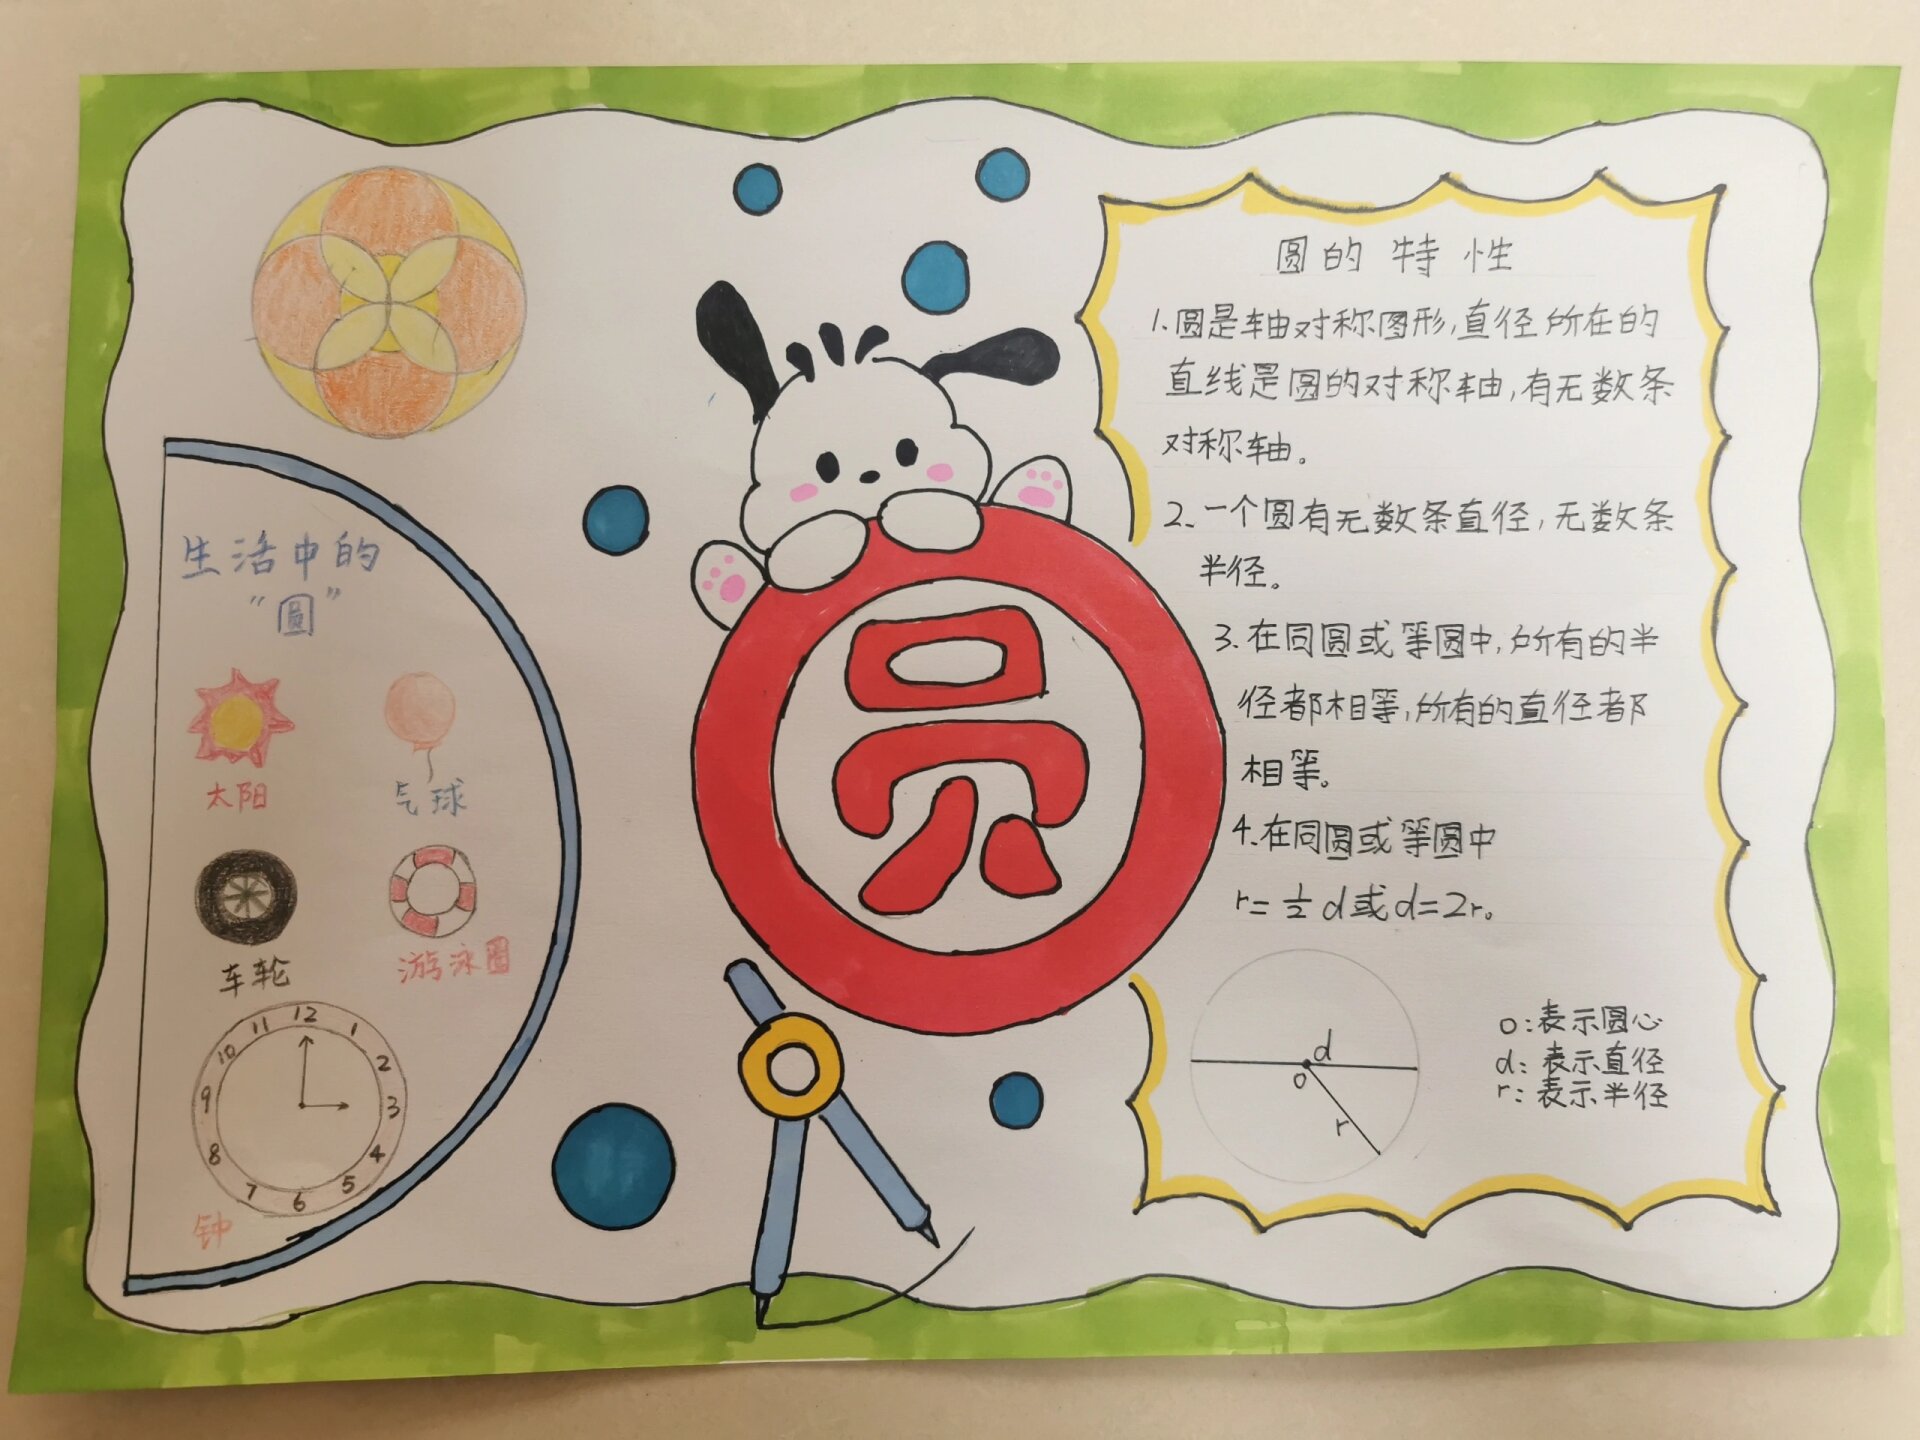 生活中的
"圆"
太阳
气球
车轮
游泳圈
12
1
2
3
4
5
6
7
8
9
10
11
钟
圆
圆的特性
1.圆是轴对称图形,直径所在的
直线是圆的对称轴,有无数条
对称轴。
2.一个圆有无数条直径,无数条
半径。
3.在同圆或等圆中,所有的半
径都相等,所有的直径都
相等。
4.在同圆或等圆中
r=½d或d=2r。
d
o
r
o:表示圆心
d:表示直径
r:表示半径